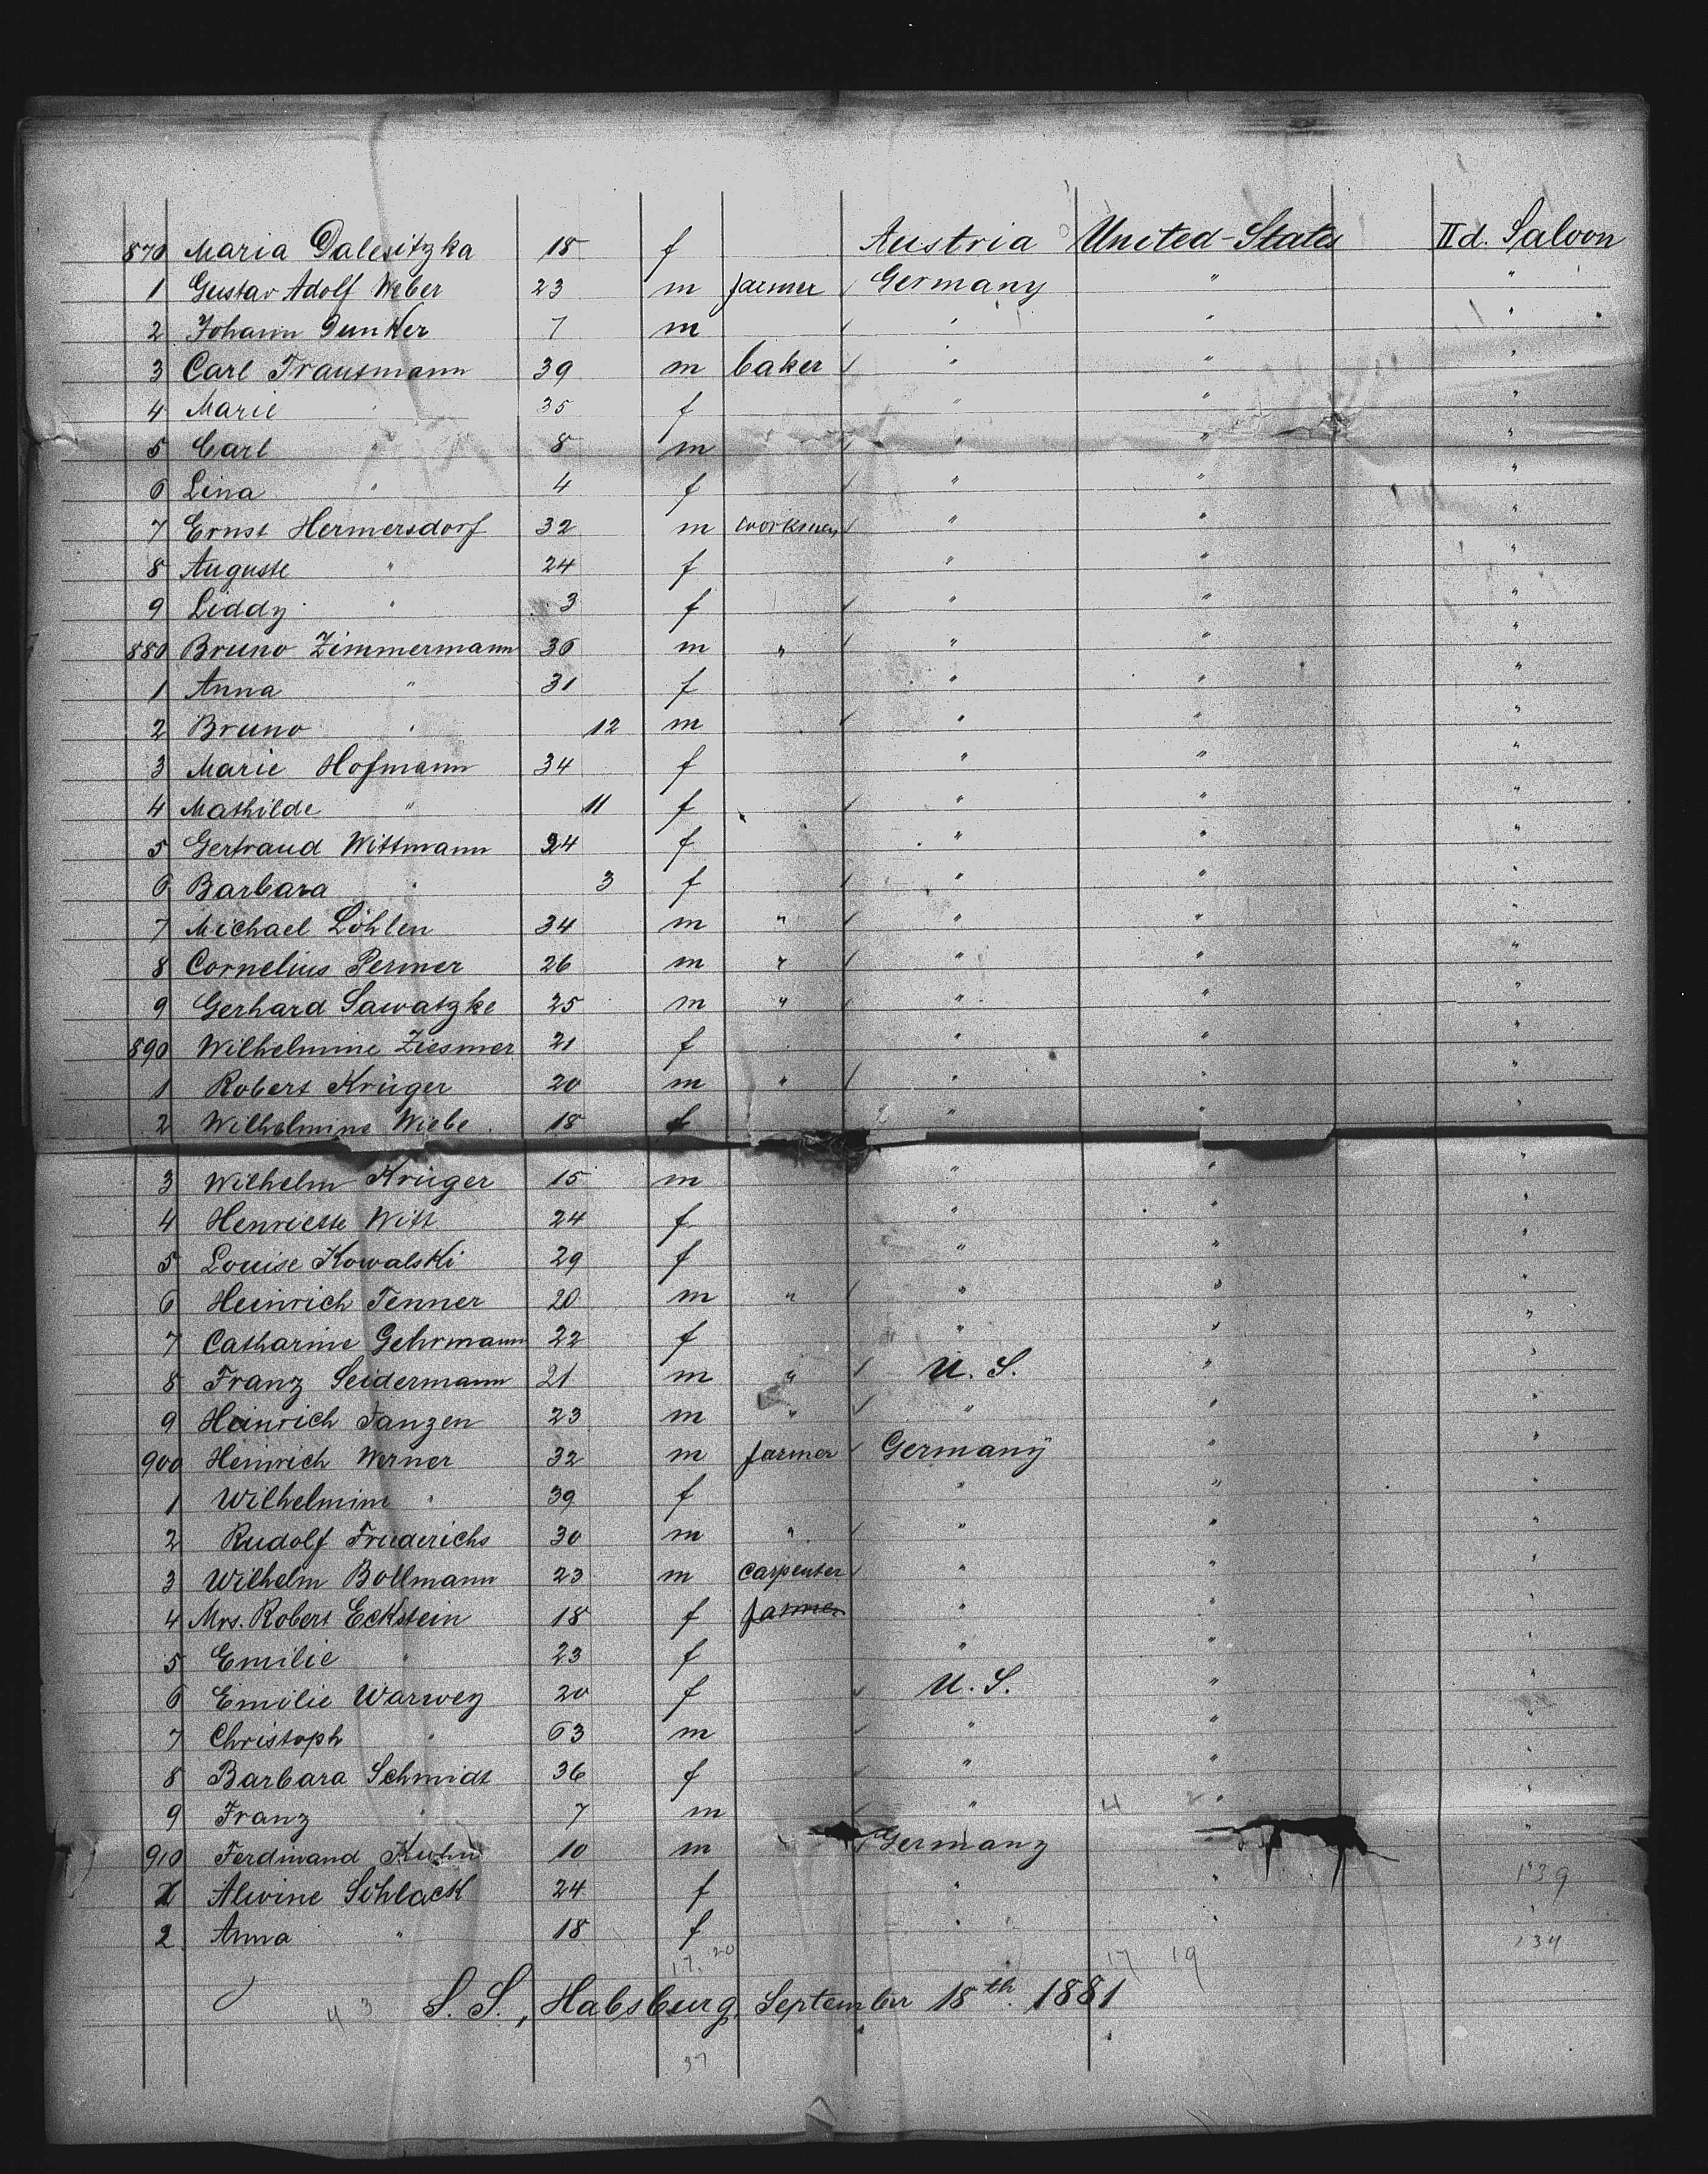 870 Maria Dalesitzka 18 f Austria United-States IId. Saloon
1 Gustav Adolf Weber 23 m farmer / Germany " "
2 Johann Dunker 7 m / " " "
3 Carl Trautmann 39 m baker / " " "
4 Marie " 35 f " " "
5 Carl " 8 m / " " "
6 Lina " 4 f / " " "
7 Ernst Hermersdorf 32 m workman / " " "
8 Auguste " 24 f " " "
9 Liddy " 3 f / " " "
880 Bruno Zimmermann 36 m " / " " "
1 Anna " 31 f " " "
2 Bruno " 12 m / " " "
3 Marie Hofmann 34 f " " "
4 Mathilde " 11 f / " " "
5 Gertraud Wittmann 24 f " " "
6 Barbara " 3 f / " " "
7 Michael Löhlen 34 m " / " " "
8 Cornelius Penner 26 m " / " " "
9 Gerhard Sawatzke 25 m " / " " "
890 Wilhelmine Ziesmer 21 f " " "
1 Robert Krüger 20 m " / " " "
2 Wilhelmine Wiebe 18 f " " "
3 Wilhelm Krüger 15 m " " "
4 Henriette Witt 24 f " " "
5 Louise Kowalski 29 f " " "
6 Heinrich Tenner 20 m " / " " "
7 Catharine Gehrmann 22 f " " "
8 Franz Seidermann 21 m " / U. S. " "
9 Heinrich Janzen 23 m " / " " "
900 Heinrich Werner 32 m farmer / Germany " "
1 Wilhelmine " 39 f " " "
2 Rudolf Friederichs 30 m " / " " "
3 Wilhelm Bollmann 23 m carpenter / " " "
4 Mrs. Robert Eckstein 18 f farmer " " "
5 Emilie " 23 f " " "
6 Emilie Warwey 20 f / U. S. " "
7 Christoph " 63 m / " " "
8 Barbara Schmidt 36 f / " " "
9 Franz " 7 m / " 4 2 " "
910 Ferdinand Kuhn 10 m / Germany " "
1 Alwine Schlack 24 f " " 139
2 Anna " 18 f " " " 134
17. 20 17 19
43 S. S., Habsburg, September 18th. 1881
37